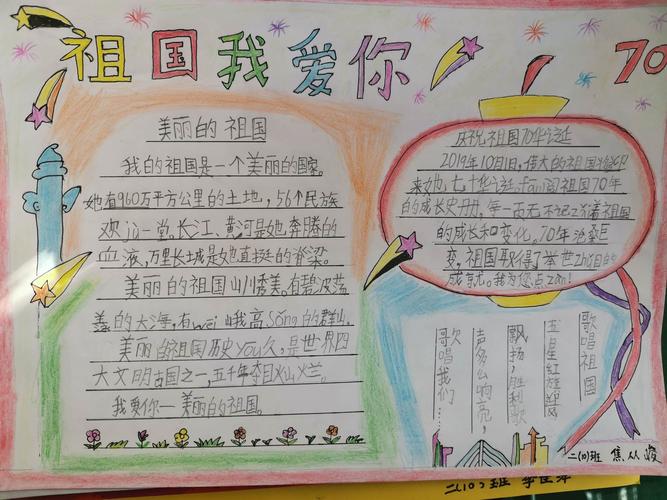 祖国我爱你
70
美丽的祖国
我的祖国是一个美丽的国家。
她有960万平方公里的土地,56个民族
欢jù一堂。长江、黄河是她奔腾的
血液,万里长城是她直挺的脊梁。
美丽的祖国山川秀美。有碧波荡
的大海,有wei峨高sǒng的群山。
美丽的祖国历史yōu久,是世界四
大文明古国之一,五千年
我爱你一美丽的祖国。
庆祝祖国70华诞
2019年10月1日,伟大的祖国
来她七十华诞。fān阅祖国70年
的成长史册,每一页无不记
的成长和变化。70年沧桑巨
变,祖国取得了举世zhǔ目的
成就。我为您点zàn!
歌唱祖国
五星红旗迎风
飘扬,胜利歌
声多么响亮,
歌唱我们……
二(10)班 焦从
二(10)班 李佳